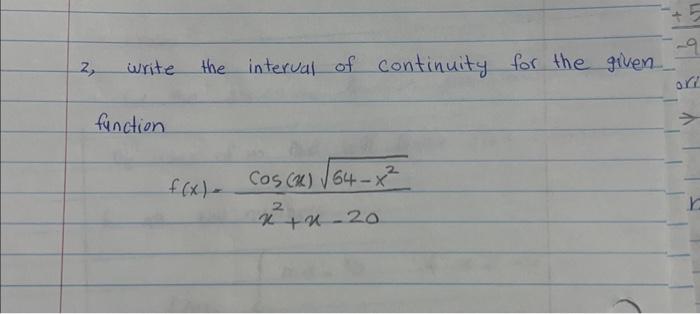 2, write the interval of continuity for the given
function
f(x) = cos(x) √64-x²
x² + x - 20
+ 5
-9
ori
→